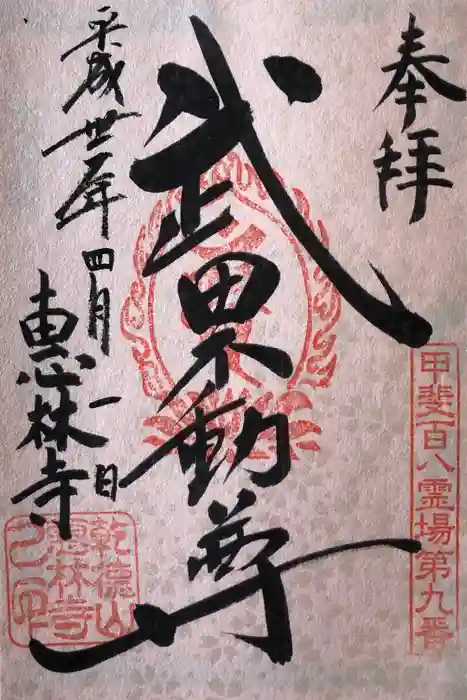 奉拝
甲斐百八霊場第九番
武田不動尊
平成卅一年四月一日
恵林寺
乾徳山
恵林寺